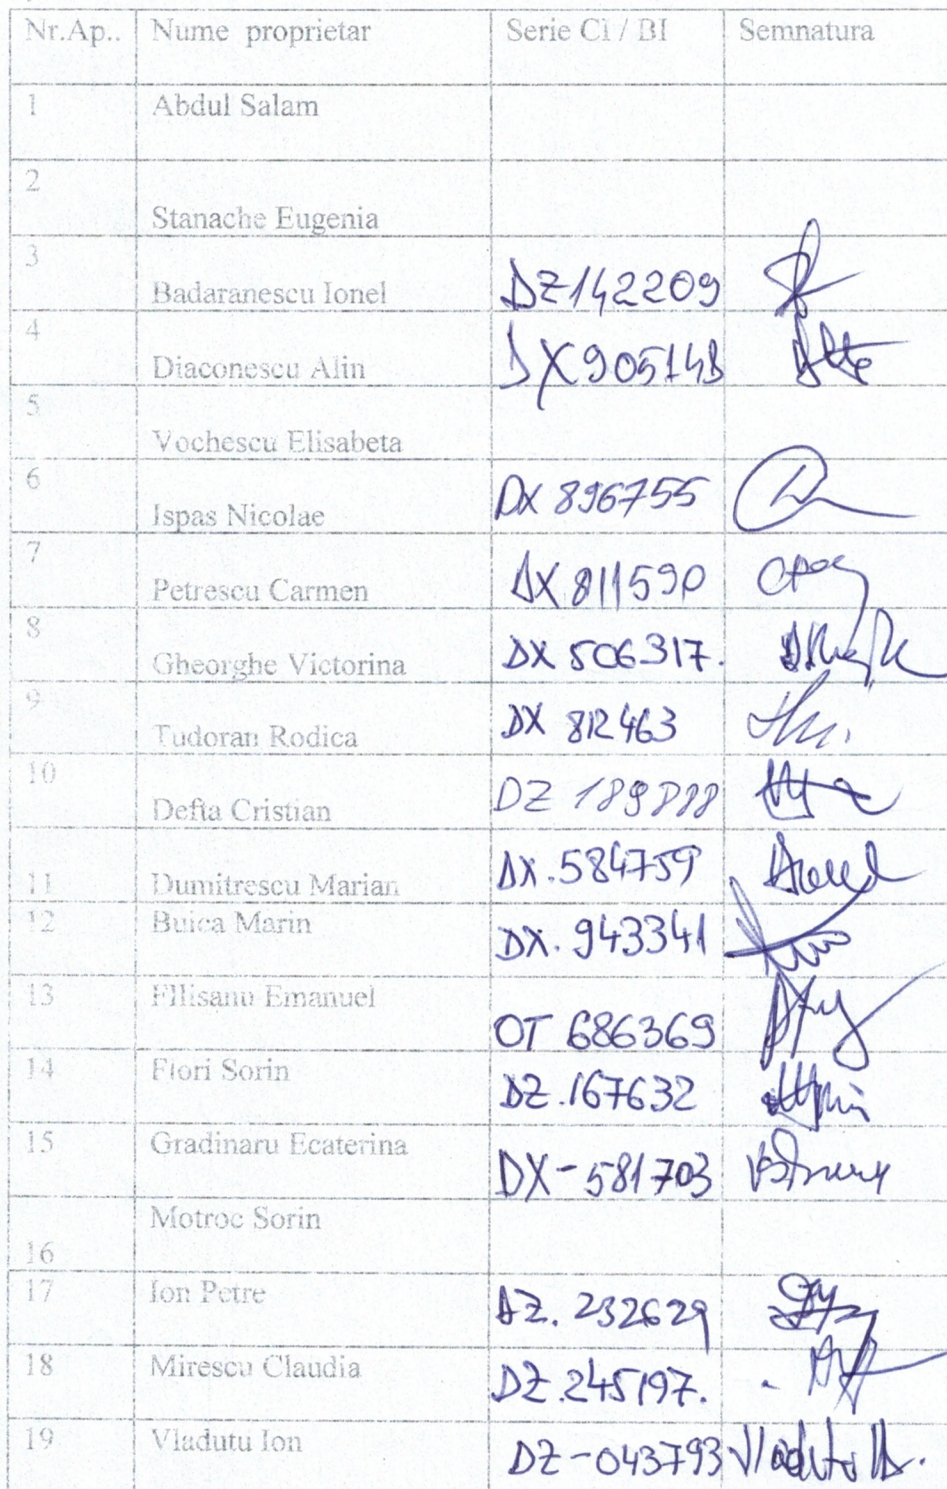 Nr.Ap.. Nume proprietar Serie CI / BI Semnatura
1 Abdul Salam
2 Stanache Eugenia
3 Badaranescu Ionel DZ142209
4 Diaconescu Alin
5 Vochescu Elisabeta
6 Ispas Nicolae DX 896755
7 Petrescu Carmen DX 811590
8 Gheorghe Victorina DX 506317.
9 Tudoran Rodica DX 812463
10 Defta Cristian DZ 189888
11 Dumitrescu Marian DX.584759
12 Buica Marin DX. 943341
13 FIlisanu Emanuel OT 686369
14 Flori Sorin DZ.167632
15 Gradinaru Ecaterina DX-581703
16 Motroc Sorin
17 Ion Petre DZ. 232629
18 Mirescu Claudia DZ.245197.
19 Vladutu Ion DZ-043793